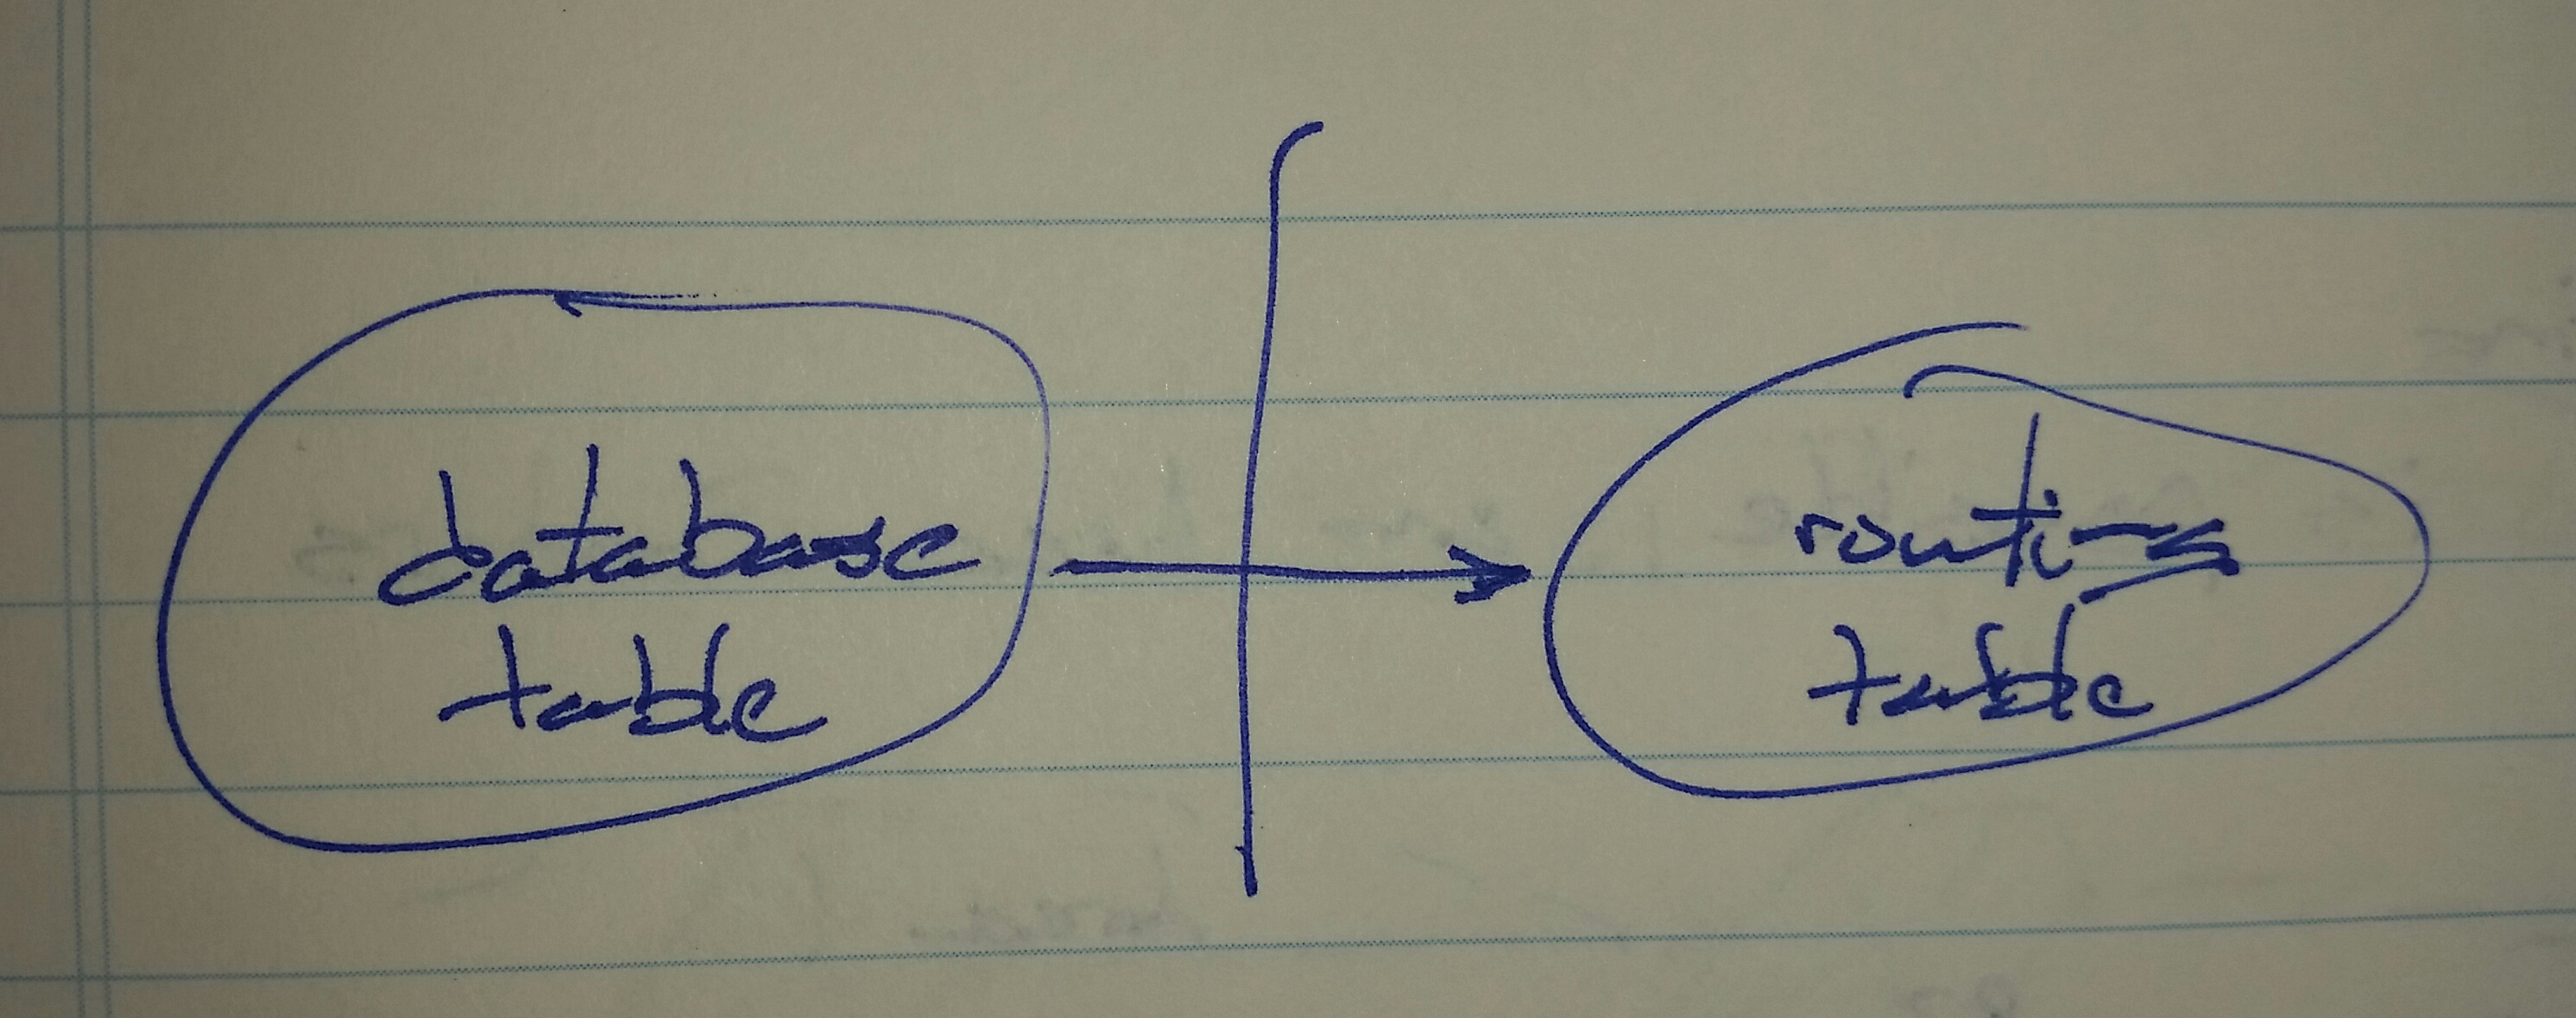 database
table
routing
table